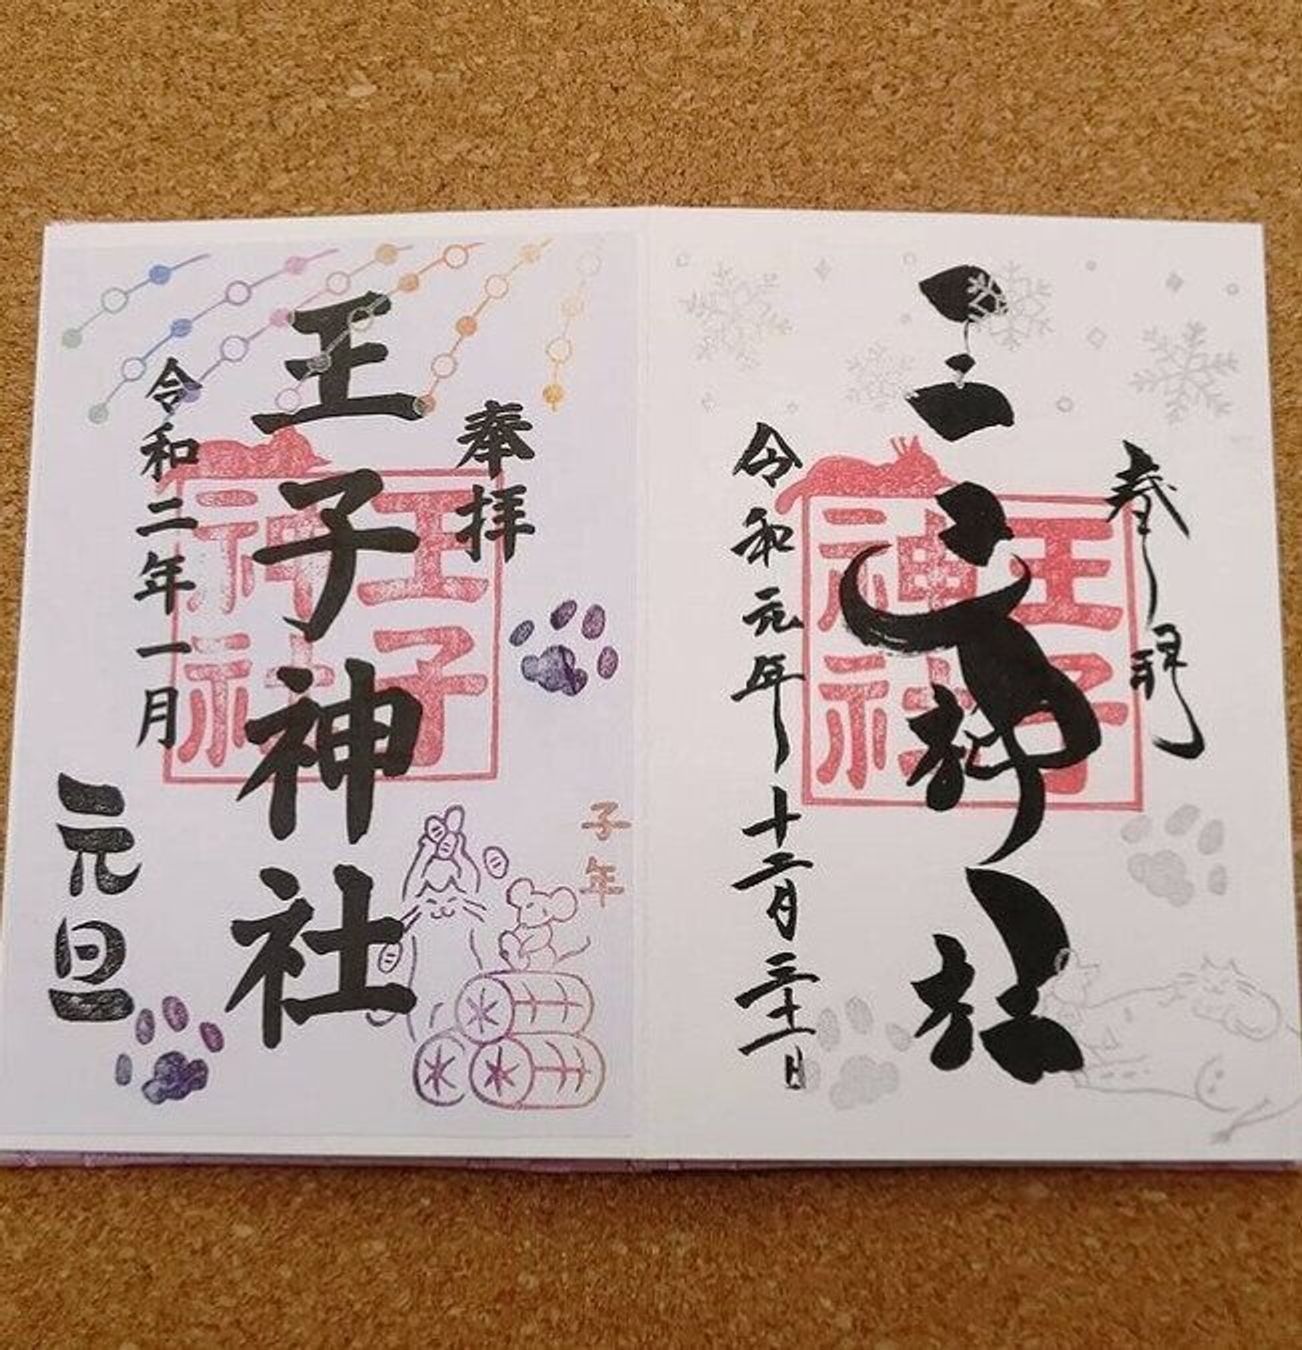 奉拝
王子神社
令和元年十二月三十一日
王子
神社
奉拝
王子神社
令和二年一月
元旦
王子
神社
子年